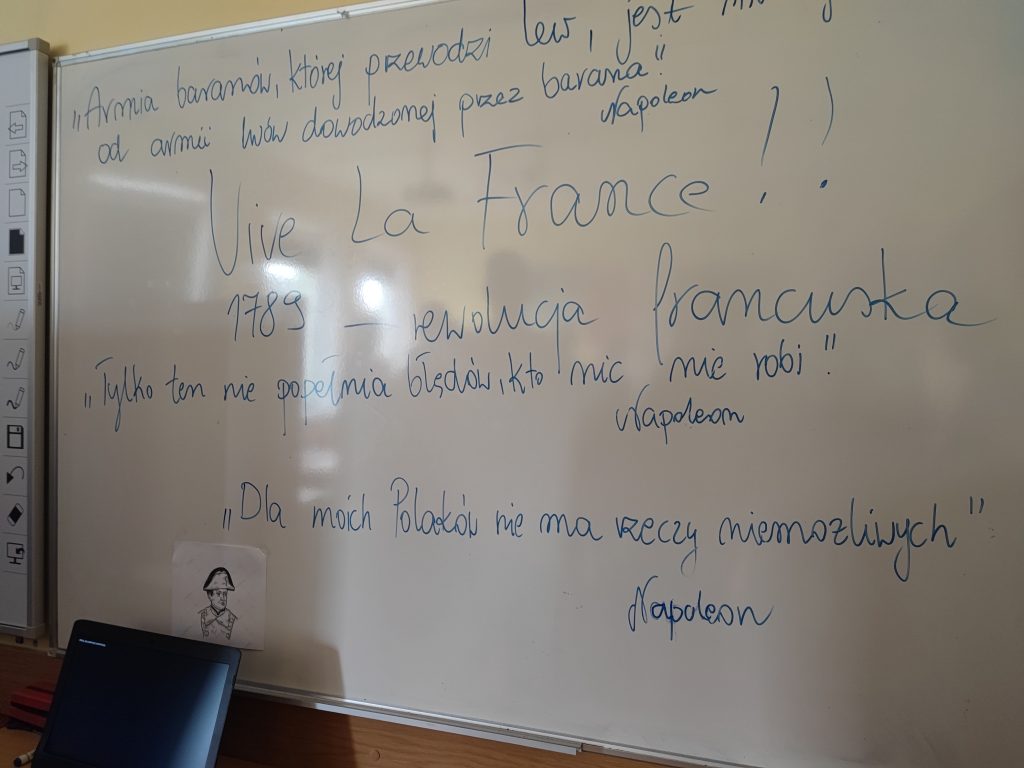 „Armia baranów, której przewodzi lew, jest
od armii lwów dowodzonej przez barana".
Napoleon
Vive La France!!
1789 — rewolucja francuska
„Tylko ten nie popełnia błędów, kto nic nie robi".
Napoleon
„Dla moich Polaków nie ma rzeczy niemożliwych".
Napoleon